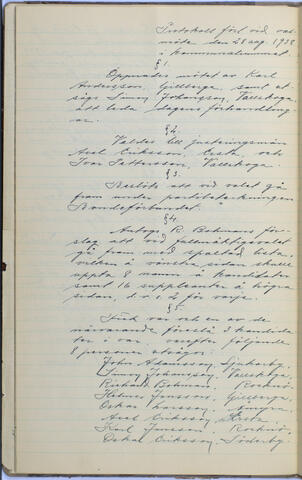 Protokoll förd vid val-
möte den 28 aug. 1938
i kommunalrummet.
§ 1.
Öppnades mötet av Karl
Andersson, Gillberga, samt ut-
sågs Simon Johansson, Vallskoga
att leda dagens förhandling-
ar.
§ 2.
Valdes till justeringsmän
Axel Eriksson, och
Ivar Pettersson, Vallskoga.
§ 3.
Beslöts att vid valet gå
fram under partibeteckningen
Bondeförbundet.
§ 4.
Antogs R. Bohmans för-
slag att vid fullmäktigevalet
gå fram med spaltad lista,
vilken å vänstra sidan skulle
uppta 8 namn å kandidater
samt 16 suppleanter å högra
sidan, d.v.s. 2 för varje.
§ 5.
Fick var och en av de
närvarande föreslå 3 kandida-
ter i var, varefter följande
8 personer utsågs:
John Adamsson,
Simon Johansson, Vallskoga,
Richard Bohman,
Helmer Jansson, Gillberga,
Oskar Larsson,
Axel Eriksson,
Karl Jansson,
Oskar Eriksson, Söderby.